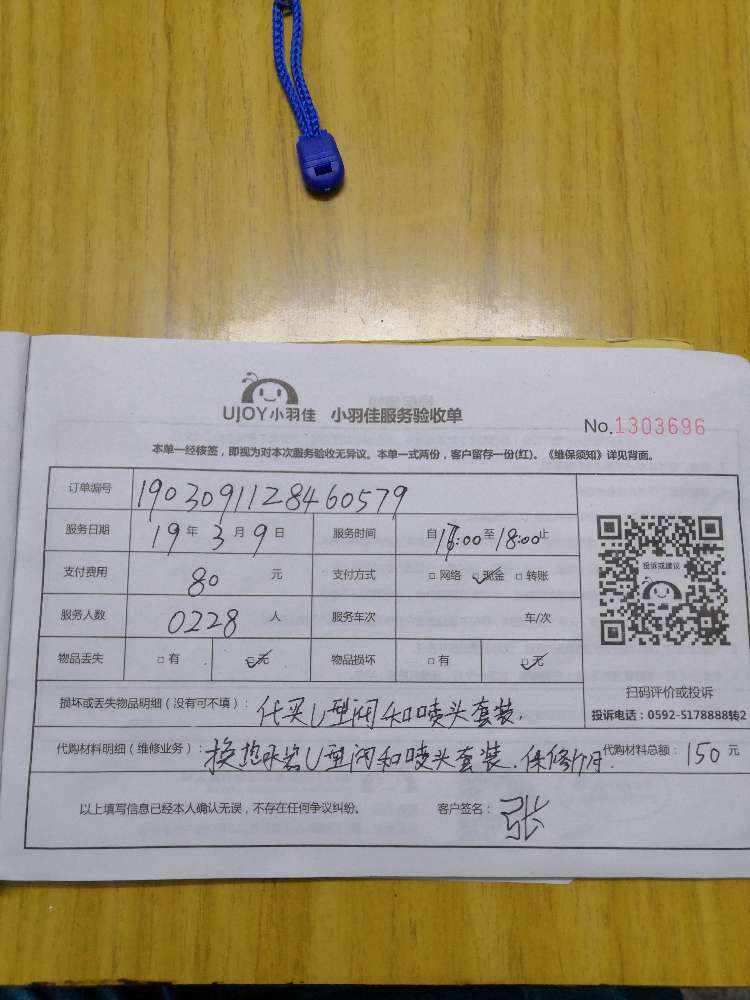 UJOY小羽佳 小羽佳服务验收单
No.1303696
本单一经核签，即视为对本次服务验收无异议。本单一式两份，客户留存一份(红)。《维保须知》详见背面。
订单编号 1903091128460579
服务日期 19年3月9日 服务时间 自16:00至18:00止
支付费用 80元 支付方式 □网络 ☑现金 □转账
投诉或建议
服务人数 0228人 服务车次 车/次
物品丢失 □有 ☑无 物品损坏 □有 ☑无
扫码评价或投诉
投诉电话：0592-5178888转2
损坏或丢失物品明细（没有可不填）： 代买U型阀和喷头套装.
代购材料明细（维修业务）：换热水器U型阀和喷头套装.保修 月. 代购材料总额：150元
以上填写信息已经本人确认无误，不存在任何争议纠纷。 客户签名：张